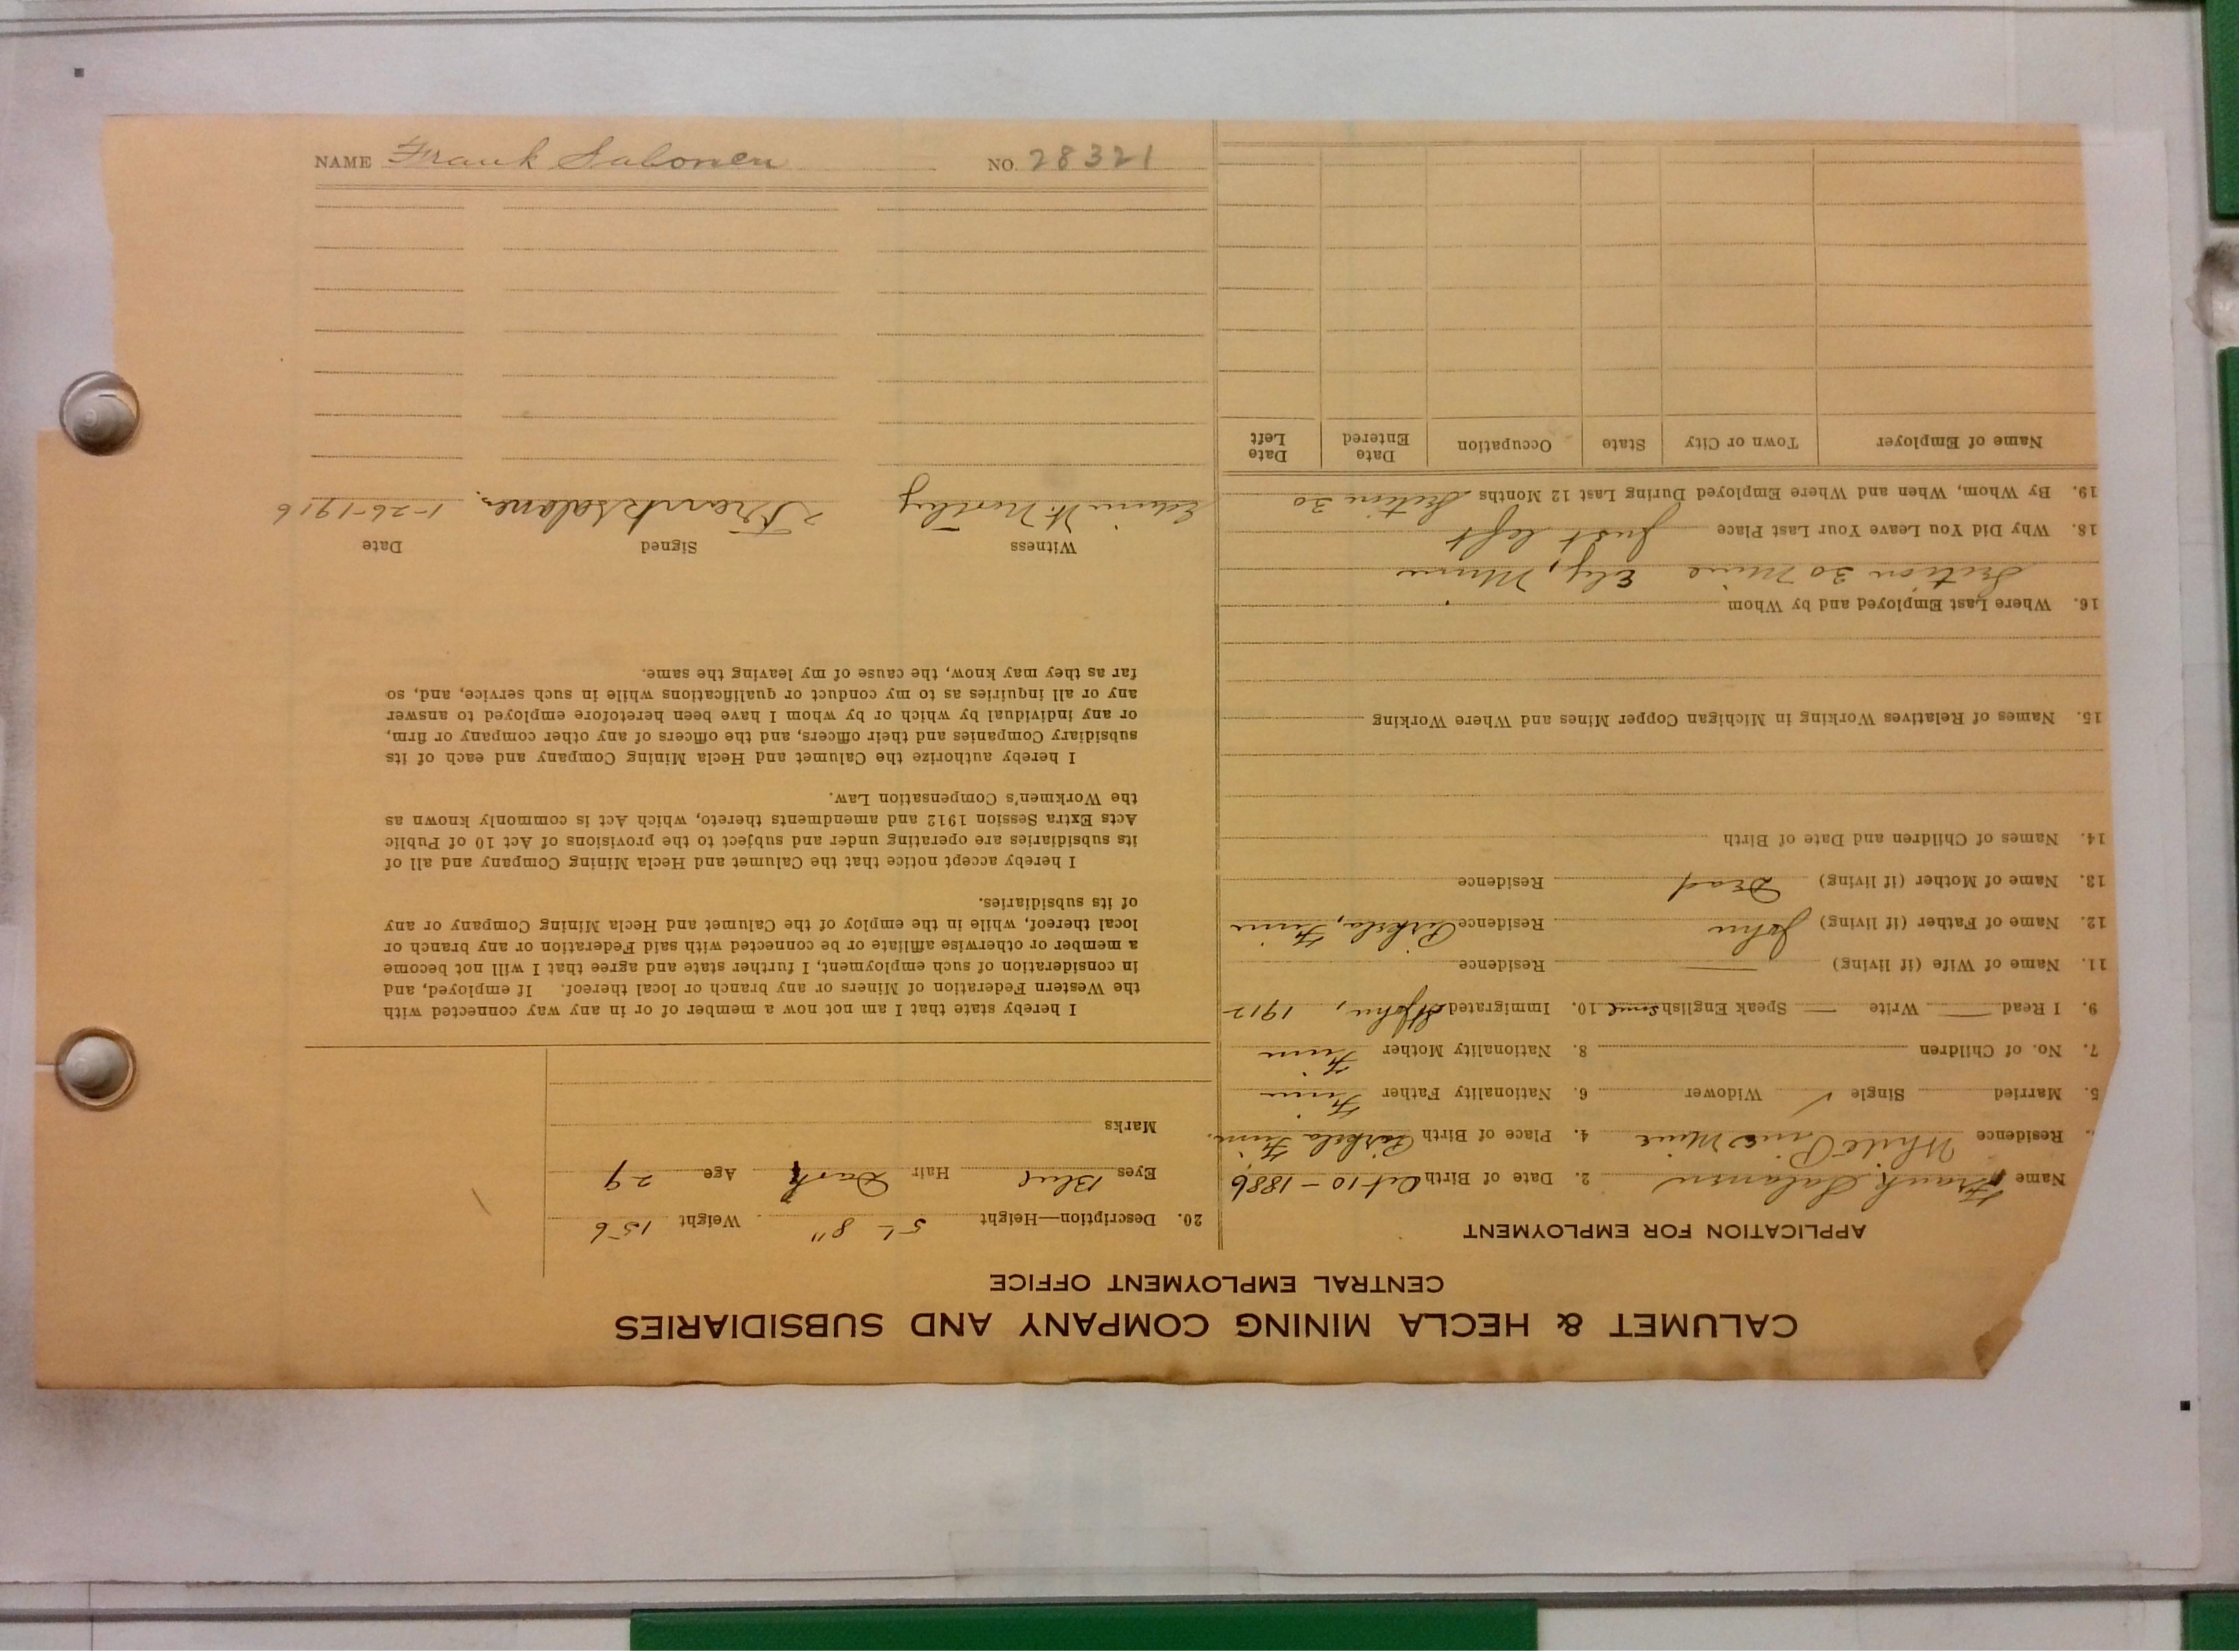 NAME Frank Salonen NO. 28321
CALUMET & HECLA MINING COMPANY AND SUBSIDIARIES
CENTRAL EMPLOYMENT OFFICE
APPLICATION FOR EMPLOYMENT
Name Frank Salonen 2. Date of Birth Oct 10 - 1886
Residence White Pine Mine 4. Place of Birth Finn.
5. Married Single ✓ Widower 6. Nationality Father Finn
7. No. of Children 8. Nationality Mother Finn
9. I Read — Write — Speak English some 10. Immigrated St John, 1912
11. Name of Wife (if living) — Residence
12. Name of Father (if living) John Residence Finn
13. Name of Mother (if living) Dead Residence
14. Names of Children and Date of Birth
15. Names of Relatives Working in Michigan Copper Mines and Where Working
16. Where Last Employed and by Whom
Section 30 Mine Ely, Minn
18. Why Did You Leave Your Last Place Just left
19. By Whom, When and Where Employed During Last 12 Months Section 30
Name of Employer Town or City State Occupation Date Entered Date Left
20. Description—Height 5' - 8" Weight 156
Eyes Blue Hair Dark Age 29
Marks
I hereby state that I am not now a member of or in any way connected with
the Western Federation of Miners or any branch or local thereof. If employed, and
in consideration of such employment, I further state and agree that I will not become
a member or otherwise affiliate or be connected with said Federation or any branch or
local thereof, while in the employ of the Calumet and Hecla Mining Company or any
of its subsidiaries.
I hereby accept notice that the Calumet and Hecla Mining Company and all of
its subsidiaries are operating under and subject to the provisions of Act 10 of Public
Acts Extra Session 1912 and amendments thereto, which Act is commonly known as
the Workmen's Compensation Law.
I hereby authorize the Calumet and Hecla Mining Company and each of its
subsidiary Companies and their officers, and the officers of any other company or firm,
or any individual by which or by whom I have been heretofore employed to answer
any or all inquiries as to my conduct or qualifications while in such service, and, so
far as they may know, the cause of my leaving the same.
Witness Signed Date
Edwin W. Frank salonen. 1-26-1916